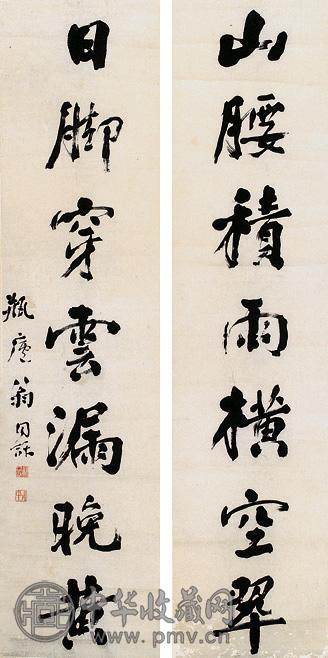 山腰積雨橫空翠
日脚穿雲漏晚黄
瓶廬翁同龢
中华收藏网
www.pmv.cn